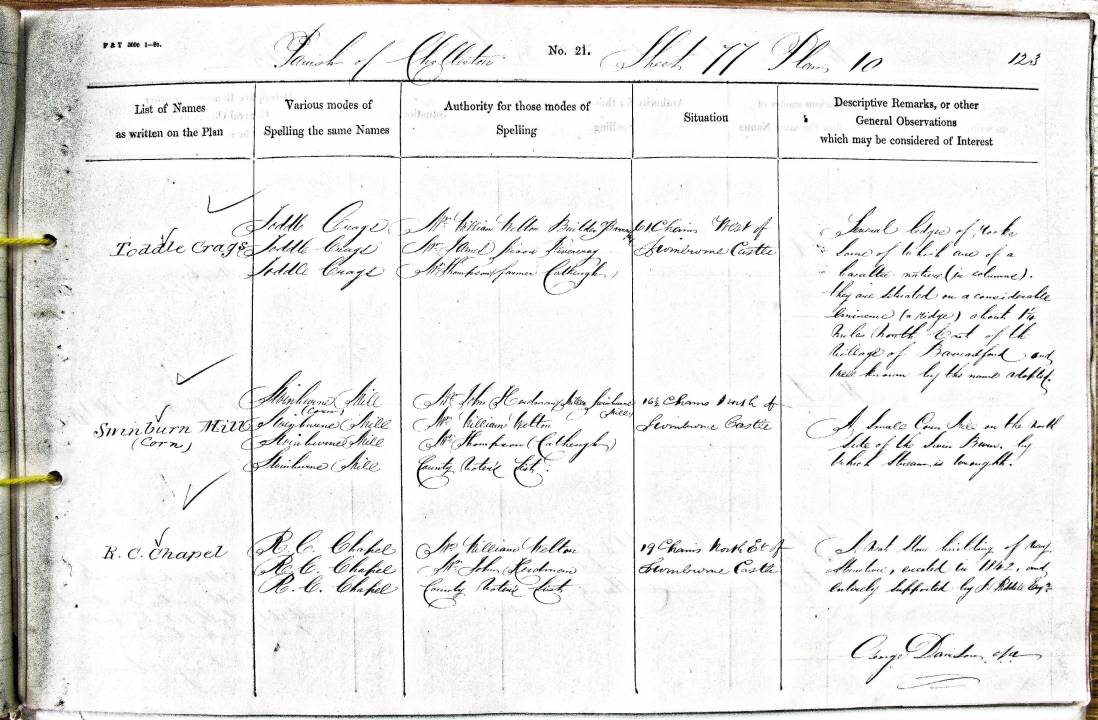 F & T 5000 1-60.
Parish of Chollerton No. 21. Sheet 77 Plan 10 123
List of Names
as written on the Plan
Various modes of
Spelling the same Names
Authority for those modes of
Spelling
Situation
Descriptive Remarks, or other
General Observations
which may be considered of Interest
Toddle Crags
Toddle Crags
Toddle Crags
Toddle Crags
Mr. William Welton Builder
Mr.
Mr. Thompson farmer Catheugh
61 Chains West of
Swinburne Castle
Several ledges of Rocks
Some of which are of a
basaltic nature (in columns).
they are situated on a considerable
eminence (a ridge) about 1¼
miles North East of the
Village of Barrasford and
well known by the name adopted.
Swinburn Mill
(Corn)
Swinburne Mill
(Corn)
Swinburne Mill
Swinburne Mill
Swinburne Mill
Mr. John Hedman Miller Swinburne
Mill
Mr. William Welton
Mr. Thompson (Catheugh)
County Voters List
16½ Chains North of
Swinburne Castle
A Small Corn Mill on the North
side of the Swin Burn. by
which Stream is wrought.
R. C. Chapel
R. C. Chapel
R. C. Chapel
R. C. Chapel
Mr. William Welton
Mr. John Hedman
County Voters List
19 Chains North Et of
Swinburne Castle
A neat Stone building of
erected in 1842, and
entirely supported by Riddell Esqr.
George Davidson c/a